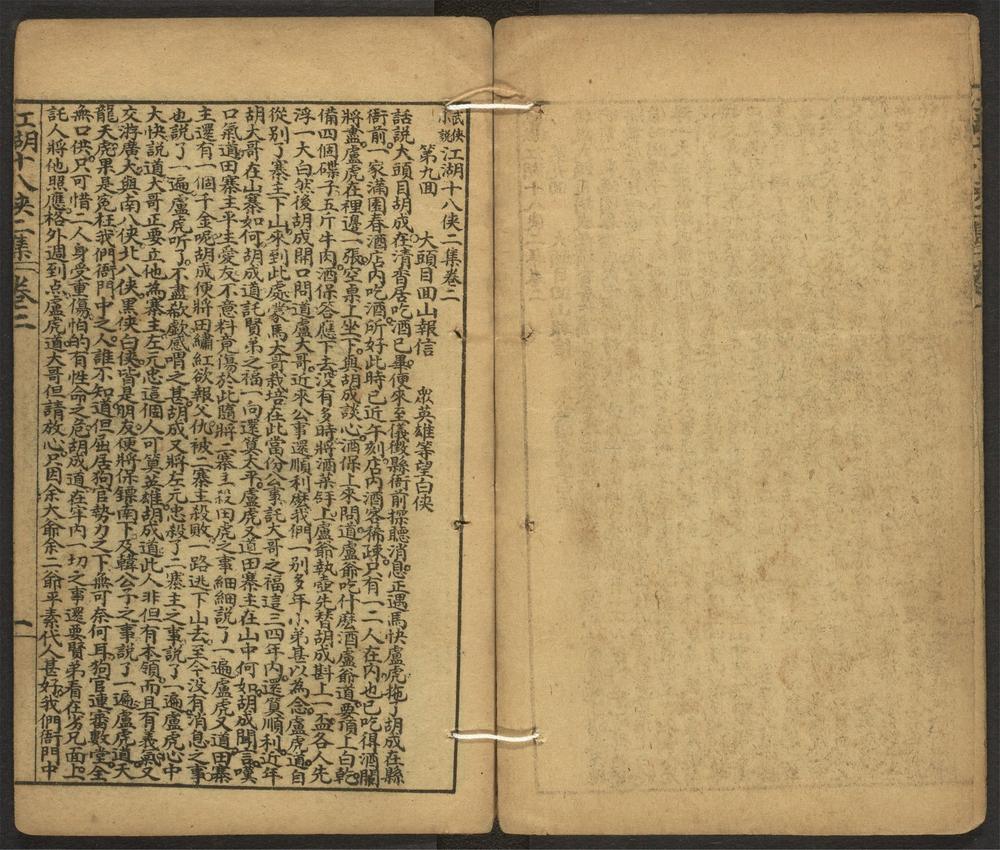 武俠小說 江湖十八俠二集卷二
第九回 大頭目回山報信 衆英雄等望白俠
話說大頭目胡成在清香居吃酒已畢便來至儀徵縣衙前探聽消息正遇馬快盧虎拖了胡成在縣
衙前一家滿園春酒店內吃酒所好此時已近午刻店內酒客稀疎只有一二人在內也已吃得酒闌
將盡盧虎在裡邊一張空桌上坐下與胡成談心酒保上來問道盧爺吃什麽酒盧爺道要頂上白乾
備四個碟子五斤牛肉酒保答應下去沒有多時將酒菜𢱉上盧爺執壺先替胡成斟上一盃各人先
浮一大白然後胡成開口問道盧大哥近來公事還順利麽我們一別多年小弟甚以為念盧虎道自
從別了寨主下山來到此處蒙馬大哥栽培在此當份公事託大哥之福這三四年內還算順利近年
胡大哥在山寨如何胡成道託賢弟之福一向還算太平盧虎又道田寨主在山中何如胡成聞言嘆
口氣道田寨主平生愛友不意料竟傷於此隨將二寨主殺田虎之事細細說了一遍盧虎又道田寨
主還有一個千金呢胡成便將田繡紅欲報父仇被二寨主殺敗一路逃下山去至今沒有消息之事
也說了一遍盧虎听了不盡欷歔感喟之甚胡成又將左元忠殺了二寨主之事說了一遍盧虎心中
大快說道大哥正要立他為寨主左元忠這個人可算英雄胡成道此人非但有本領而且有義氣又
交游廣大與南八俠北八俠黑俠白俠皆是朋友便將保鏢南下及韓公子之事說了一遍盧虎道天
龍天彪果是冤枉我們衙門中之人誰不知道但屈居狗官勢力之下無可奈何耳狗官連審數堂全
無口供只可惜二人身受重傷怕的有性命之危胡成道在牢內一切之事還要賢弟看在劣兄面上
託人將他照應格外週到点盧虎道大哥但請放心只因余大爺余二爺平素代人甚好我們衙門中
江湖十八俠二集 卷二 一